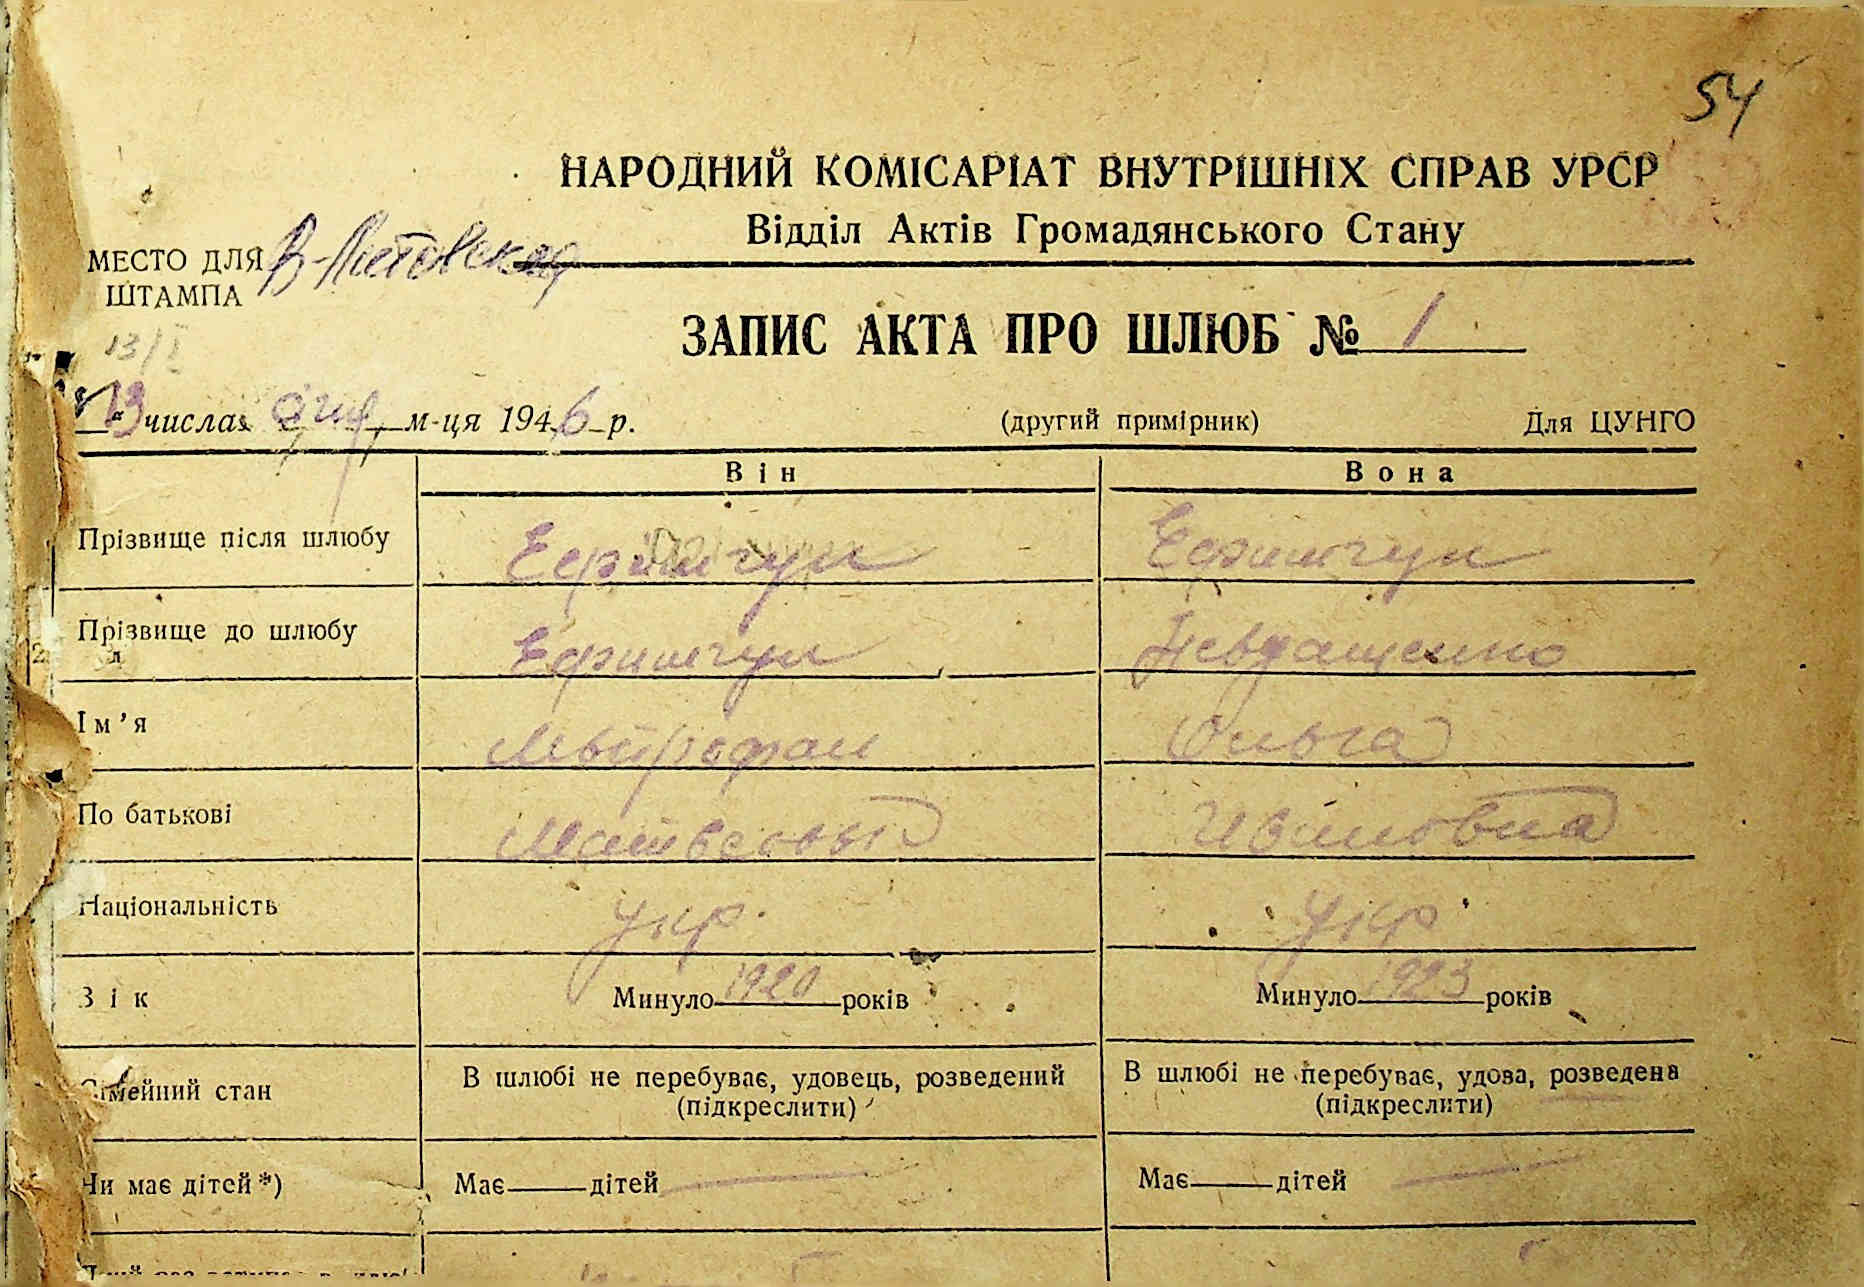 54
НАРОДНИЙ КОМІСАРІАТ ВНУТРІШНІХ СПРАВ УРСР
Відділ Актів Громадянського Стану
МЕСТО ДЛЯ В-Литовская
ШТАМПА
ЗАПИС АКТА ПРО ШЛЮБ № 1
13/I
13 числа м-ця 1946 р. (другий примірник) Для ЦУНГО
Він Вона
Прізвище після шлюбу Ефимчук Ефимчук
Прізвище до шлюбу Ефимчук
Ім'я Митрофан Ольга
По батькові Матвеевич Ивановна
Національність укр. укр
Вік Минуло 1920 років Минуло 1923 років
Сімейний стан В шлюбі не перебуває, удовець, розведений В шлюбі не перебуває, удова, розведена
(підкреслити) (підкреслити)
Чи має дітей*) Має — дітей — Має — дітей —